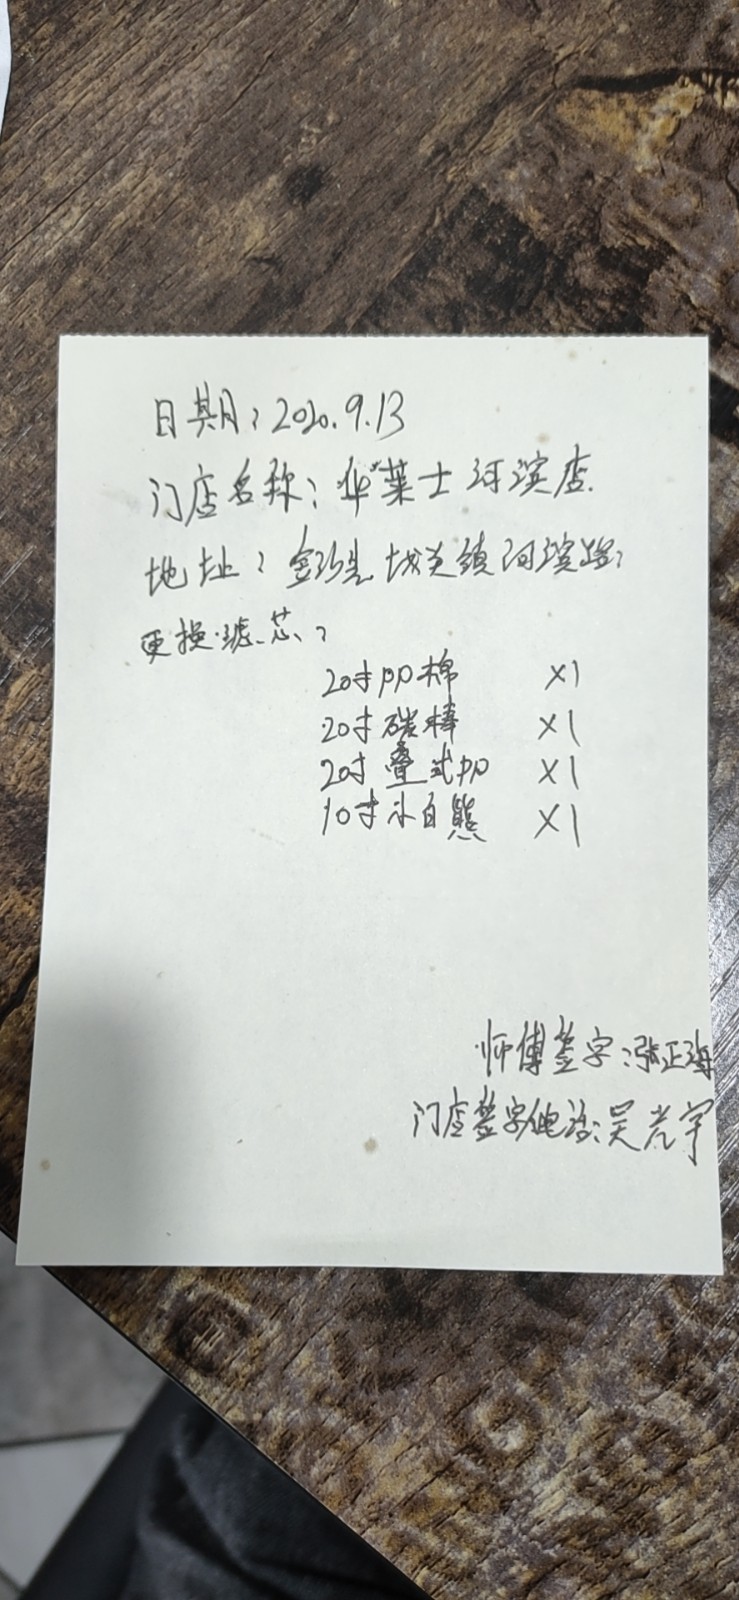 日期：2020.9.13
门店名称：华莱士河滨店.
地址：金沙县城关镇河滨路：
更换滤芯：
20寸PP棉 X1
20寸碳棒 X1
20寸叠式PP X1
10寸小白熊 X1
师傅签字：张正海
门店签字电话：吴光宇